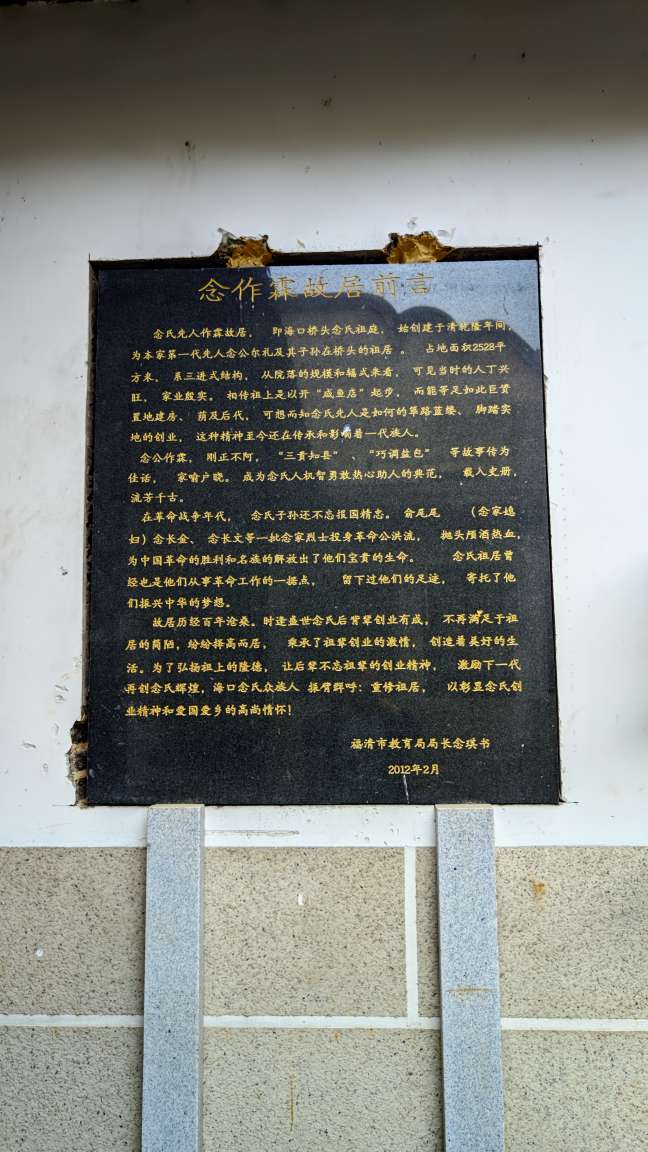 念作霖故居前言
念氏先人作霖故居， 即海口桥头念氏祖庭， 始创建于清乾隆年间，
为本家第一代先人念公尔礼及其子孙在桥头的祖居 。 占地面积2528平
方米， 系三进式结构， 从院落的规模和辐式来看， 可见当时的人丁兴
旺， 家业殷实。 相传祖上是以开“咸鱼店”起步， 而能筹足如此巨资
置地建房、 荫及后代， 可想而知念氏先人是如何的筚路蓝缕、 脚踏实
地的创业， 这种精神至今还在传承和影响着一代族人。
念公作霖， 刚正不阿， “三贡知县” 、“巧调盐包” 等故事传为
佳话， 家喻户晓。 成为念氏人机智勇敢热心助人的典范， 载入史册，
流芳千古。
在革命战争年代， 念氏子孙还不忘报国精志。 俞尾尾 （念家媳
妇）念长金、 念长文等一批念家烈士投身革命公洪流， 抛头颅洒热血，
为中国革命的胜利和名族的解放出了他们宝贵的生命。 念氏祖居曾
经也是他们从事革命工作的一据点， 留下过他们的足迹， 寄托了他
们振兴中华的梦想。
故居历经百年沧桑。时逢盛世念氏后背辈创业有成， 不再满足于祖
居的简陋，纷纷择高而居， 秉承了祖辈创业的激情， 创造着美好的生
活。为了弘扬祖上的隆德， 让后辈不忘祖辈的创业精神， 激励下一代
再创念氏辉煌，海口念氏众族人 振臂群呼：重修祖居， 以彰显念氏创
业精神和爱国爱乡的高尚情怀！
福清市教育局局长念琪书
2012年2月